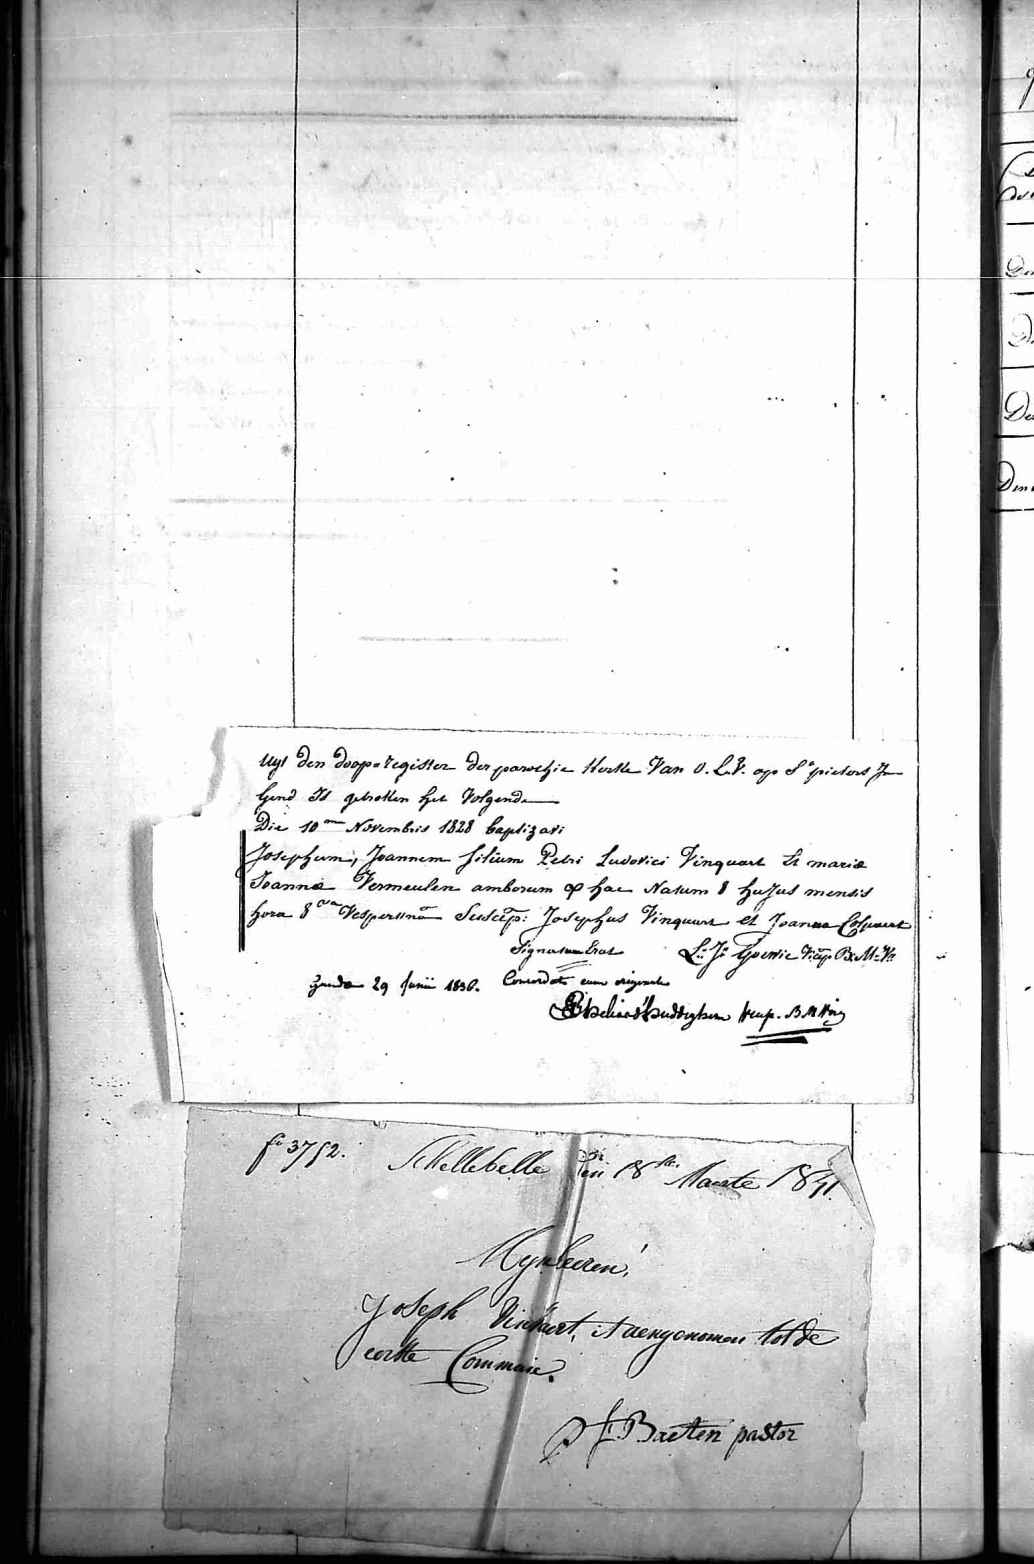 Uyt den doop-register der parochie Kerke Van O.L.V. op St pieters In
Gend Is getrokken het Volgende
Die 10ma Novembris 1828 baptizavi
Josephum, Joannem filium Petri Ludovici Vinquart et mariæ
Joannæ Vermeulen amborum ex hac Natum 8 hujus mensis
hora 8va Vespertina Suscep: Josephus Vinquart et Joanna Colpaert
Signatum Erat L. J.
Gandæ 29 Junii 1836. Concordat cum originali
fo 3752. Schellebelle den 18ste Maerte 1841.
Mynheeren!
Joseph Vinkaert, is aengenomen tot de
eerste Commuie.
Baeten pastor